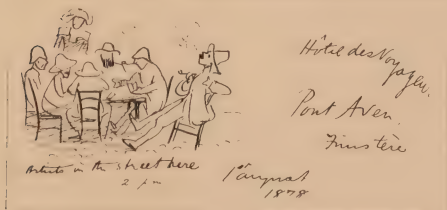 Hôtel des Voyageurs.
Pont Aven.
Finistère
Artists in the street here
2 pm
1st August
1878